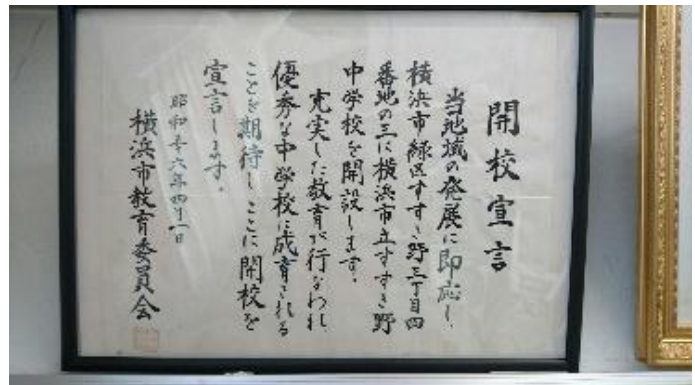 開校宣言
当地域の発展に即応し、
横浜市緑区すすき野三丁目四
番地の三に横浜市立すすき野
中学校を開設します。
充実した教育が行なわれ
優秀な中学校に成育される
ことを期待しここに開校を
宣言します。
昭和五十六年四月一日
横浜市教育委員会